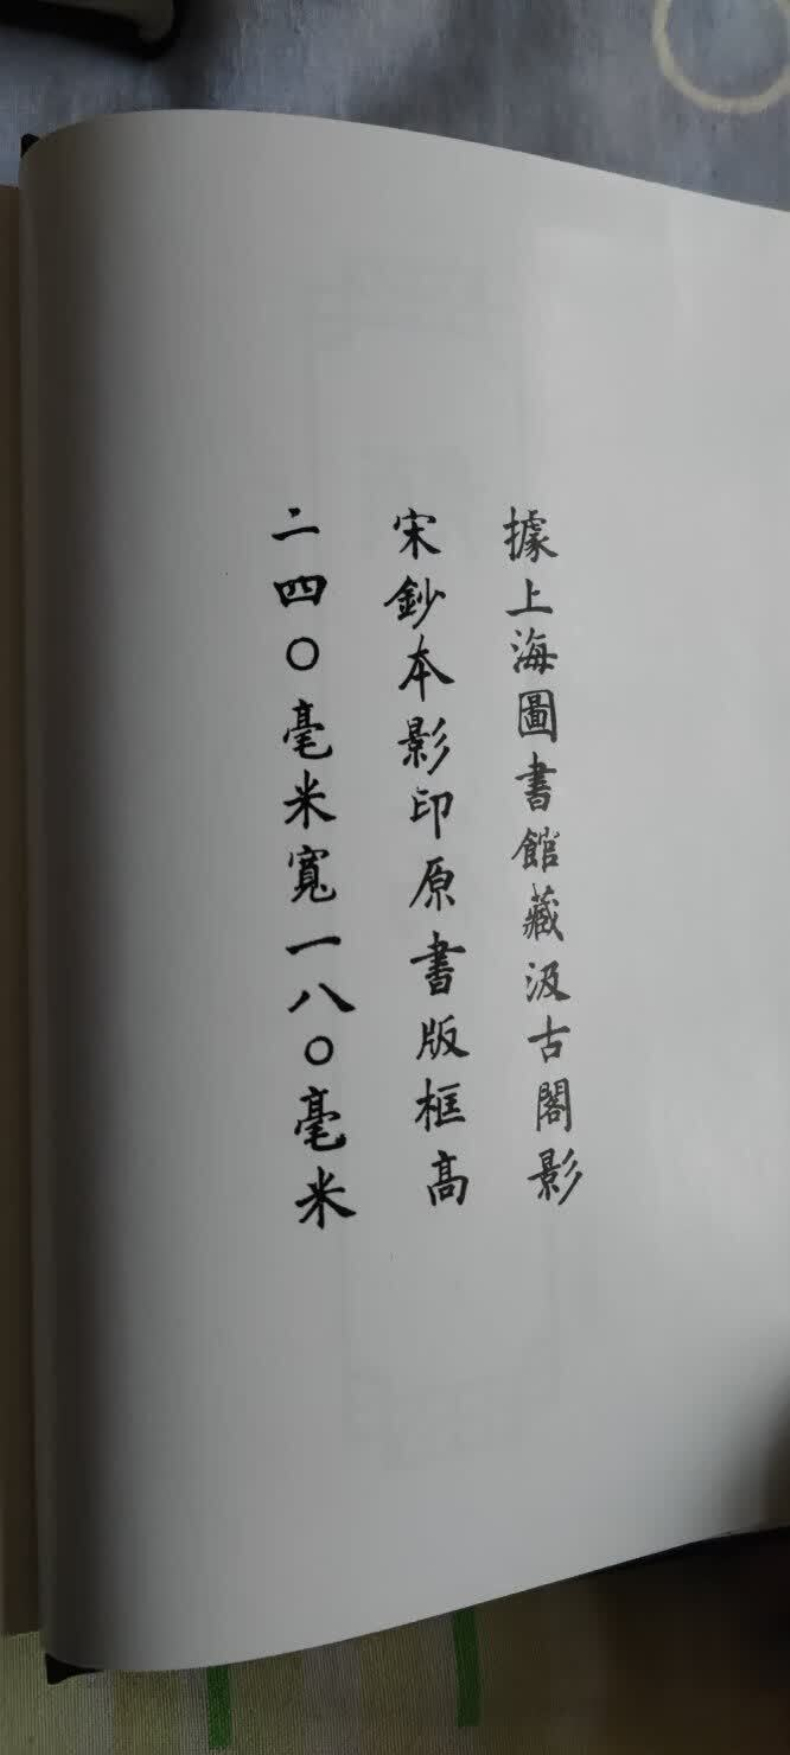 據上海圖書館藏汲古閣影
宋鈔本影印原書版框高
二四〇毫米寬一八〇毫米